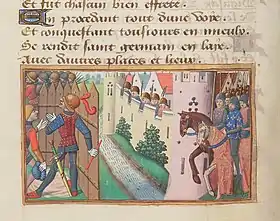 Et fut chasain bien effrete.
En procedant tout dune voye
Et conquestant tousiours en mieulx
Se rendit saint germain en laye
Avec divers places et lieux.